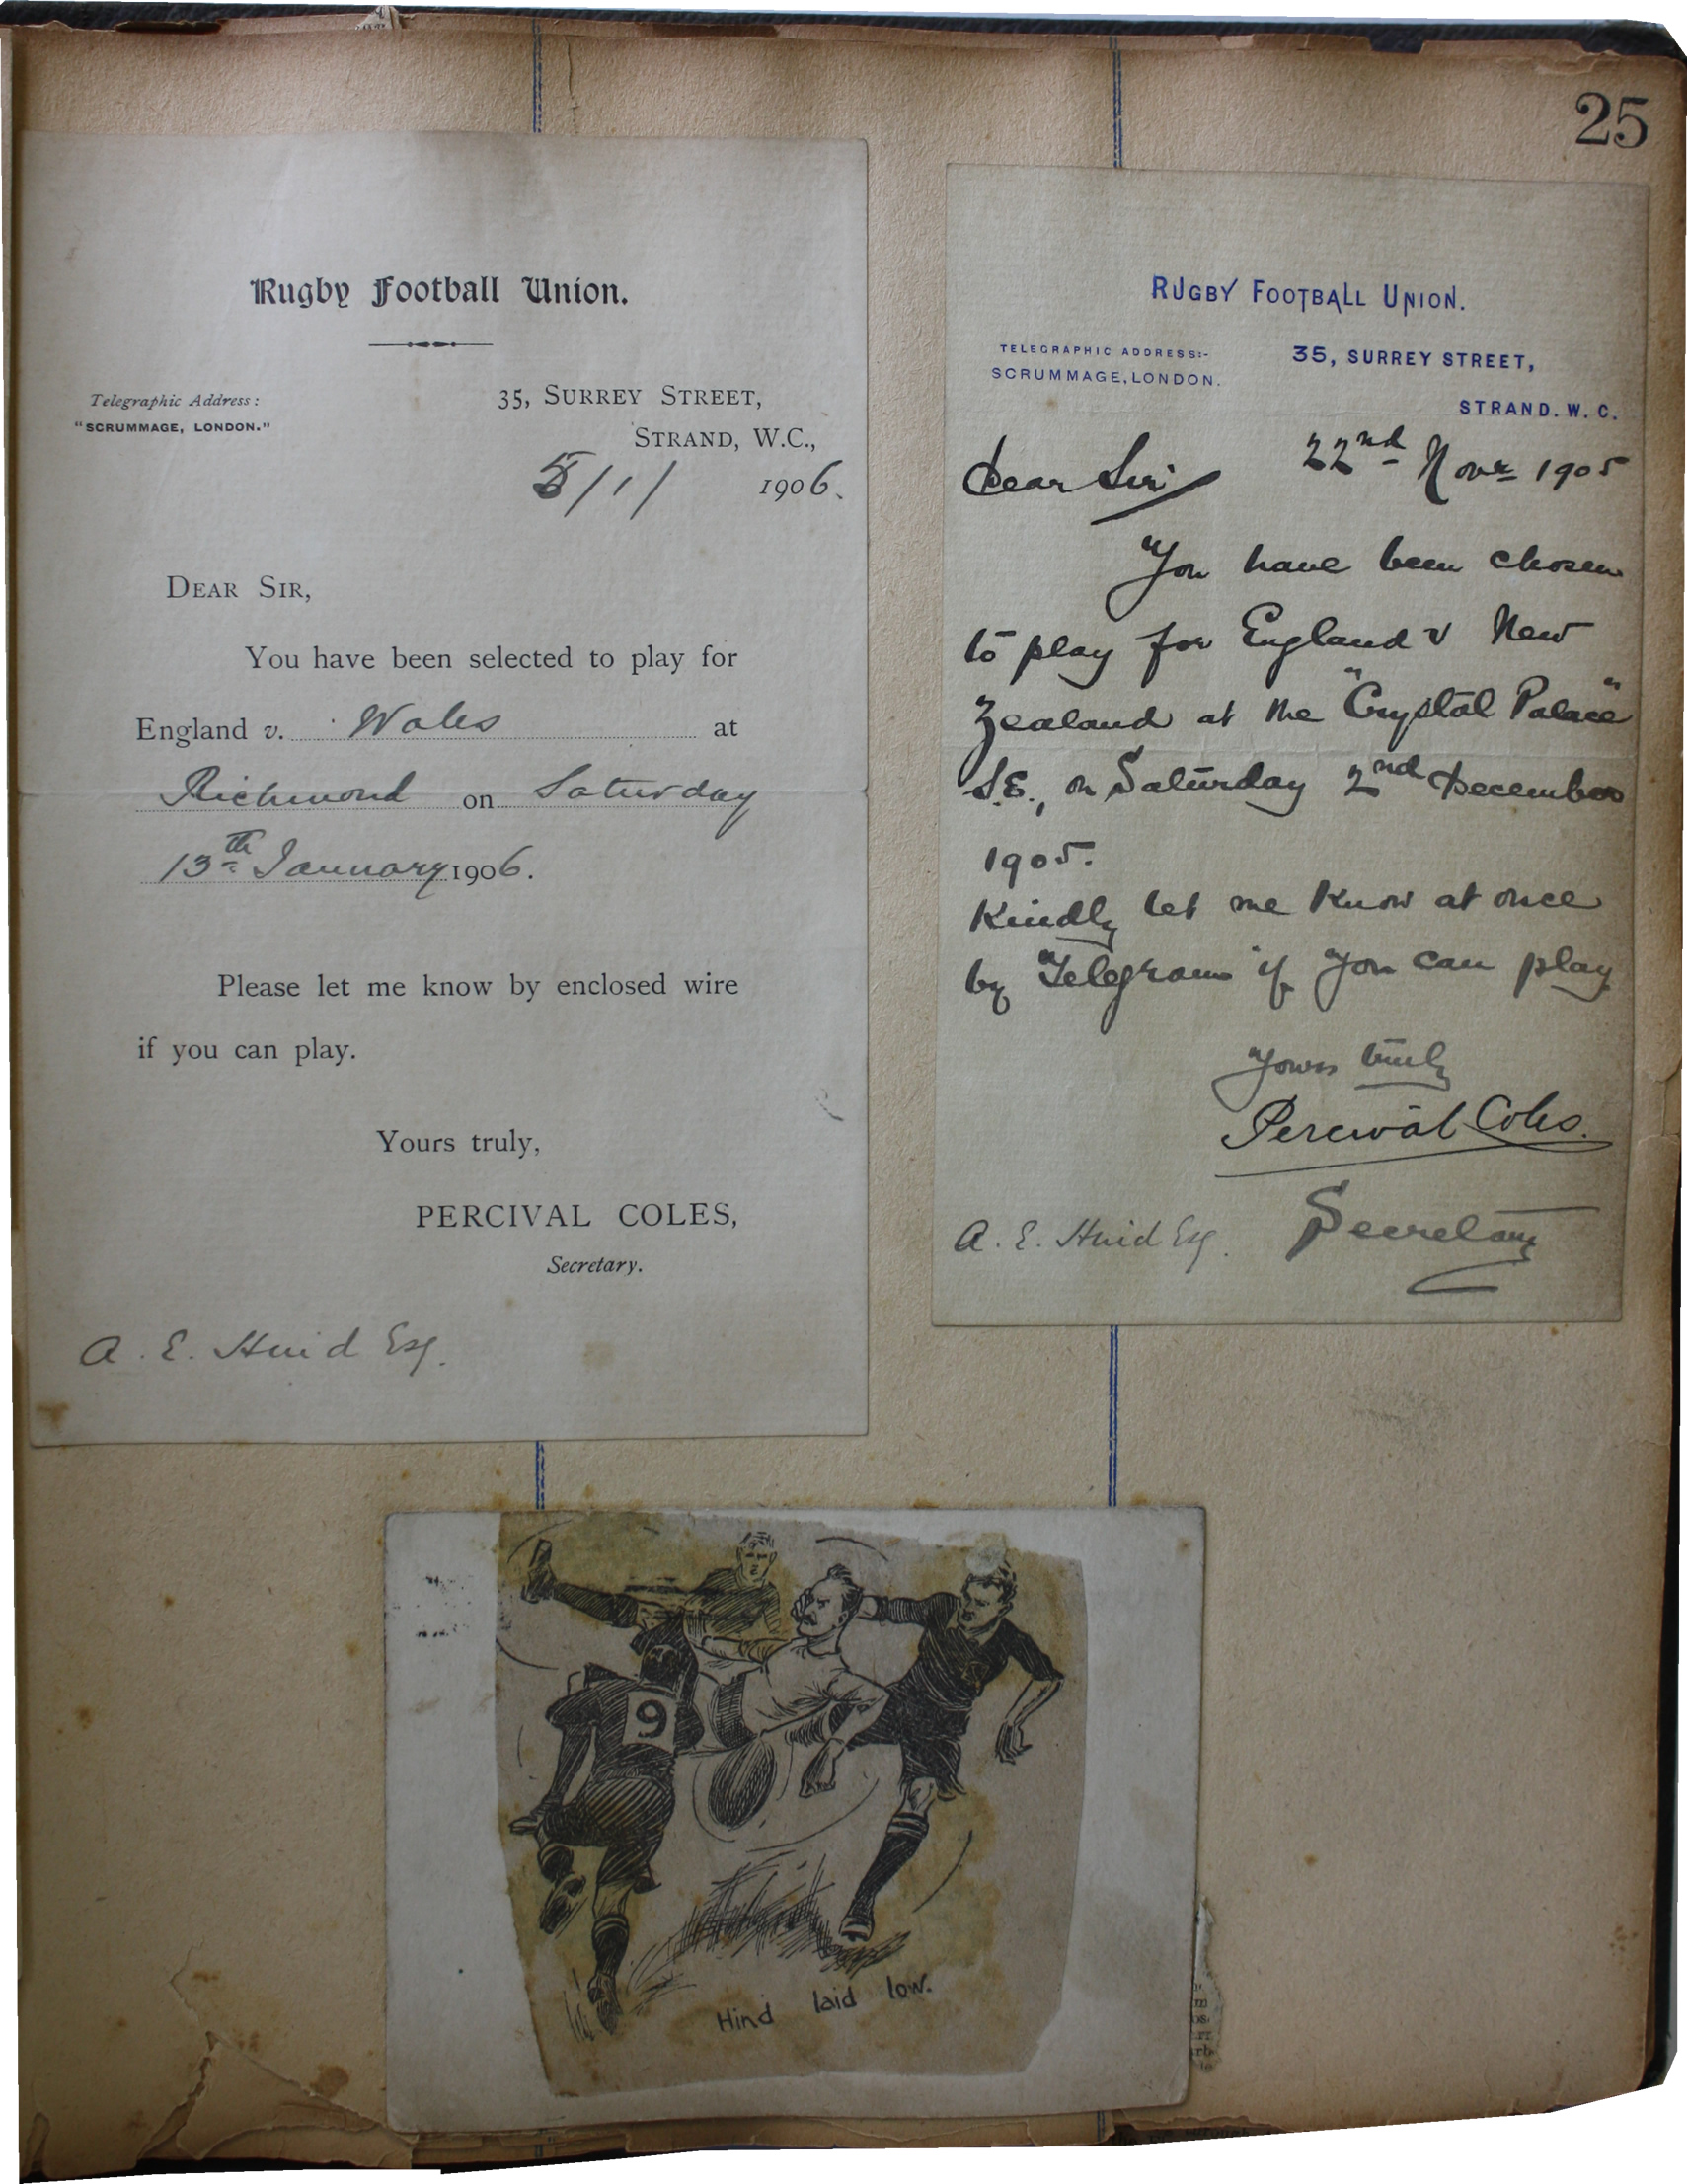 25
Rugby Football Union.
Telegraphic Address:
"SCRUMMAGE, LONDON."
35, SURREY STREET,
STRAND, W.C.,
/1/ 1906.
DEAR SIR,
You have been selected to play for
England v. Wales at
Richmond on Saturday
13th January 1906.
Please let me know by enclosed wire
if you can play.
Yours truly,
PERCIVAL COLES,
Secretary.
A. E. Hind Esq.
RUGBY FOOTBALL UNION.
TELEGRAPHIC ADDRESS:-
SCRUMMAGE, LONDON.
35, SURREY STREET,
STRAND. W. C.
22nd Novr 1905
Dear Sir
You have been chosen
to play for England v New
Zealand at the "Crystal Palace"
S.E., on Saturday 2nd December
1905.
Kindly let me know at once
by Telegram if you can play
Yours truly
Percival Coles.
Secretary
A. E. Hind Esq.
9
Hind laid low.